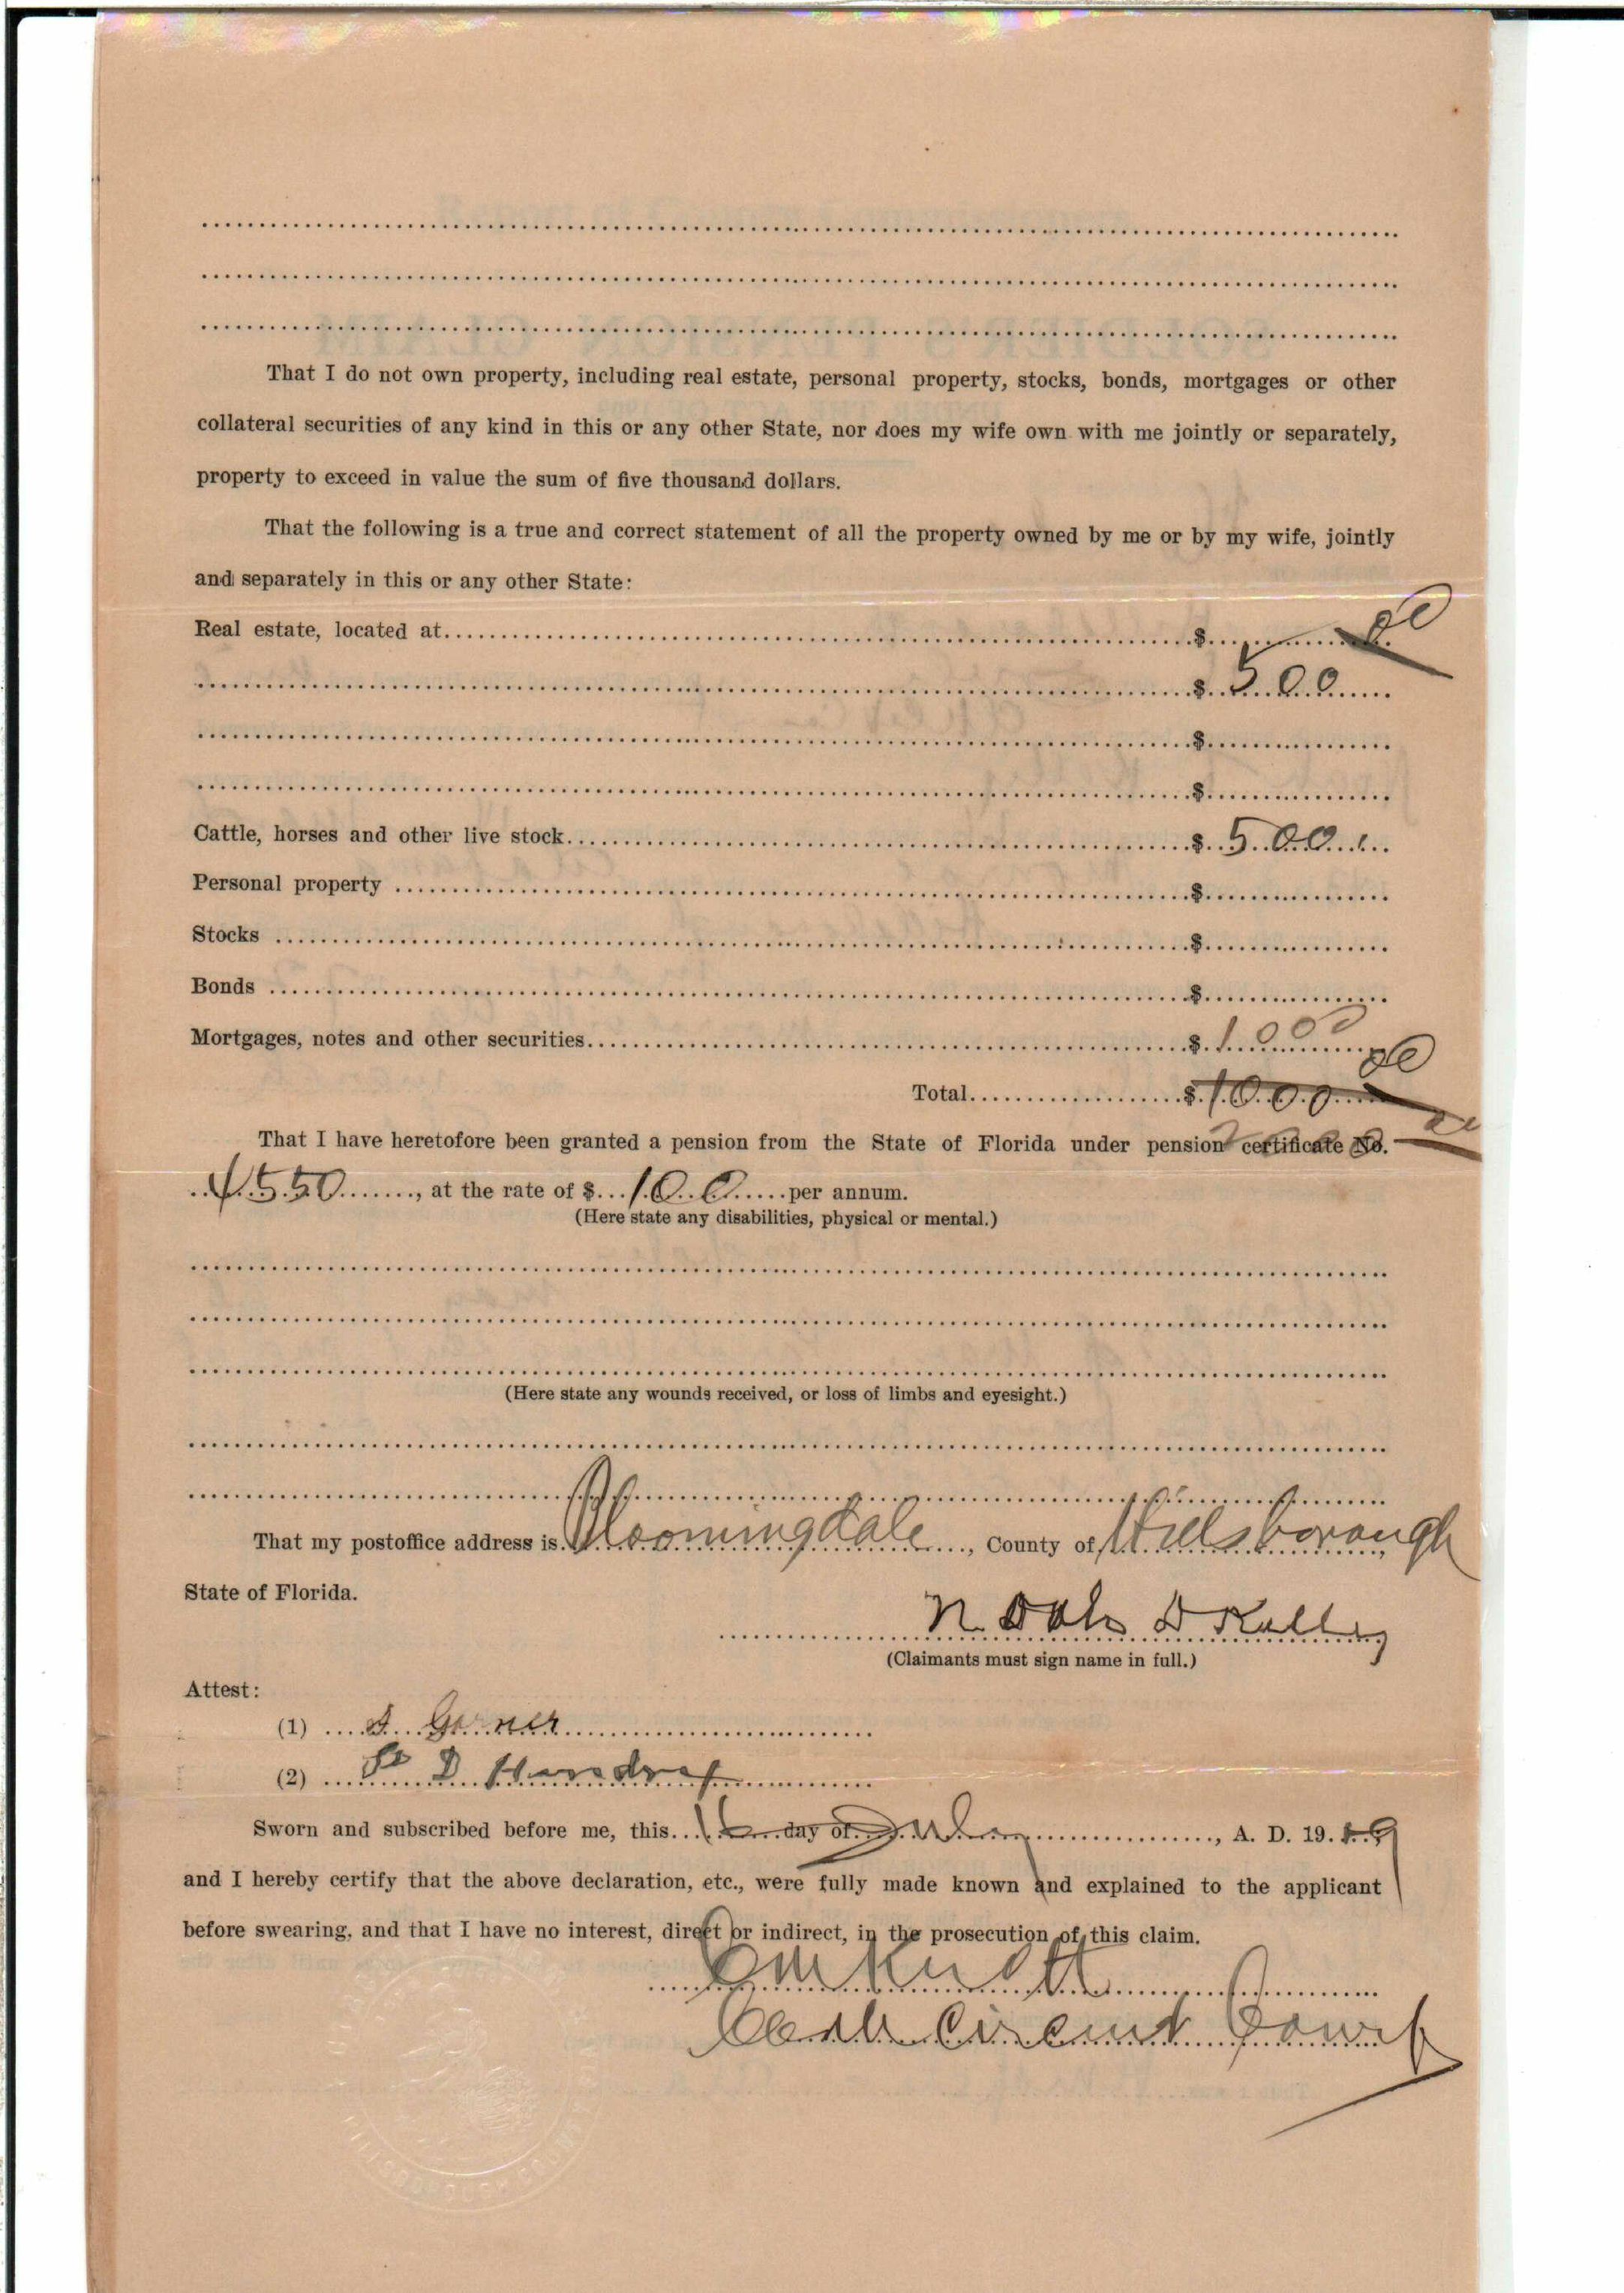 That I do not own property, including real estate, personal property, stocks, bonds, mortgages or other
collateral securities of any kind in this or any other State, nor does my wife own with me jointly or separately,
property to exceed in value the sum of five thousand dollars.
That the following is a true and correct statement of all the property owned by me or by my wife, jointly
and separately in this or any other State:
Real estate, located at $
$ 500
$
$
Cattle, horses and other live stock $ 500
Personal property $
Stocks $
Bonds $
Mortgages, notes and other securities $ 1000
Total $ 1000
That I have heretofore been granted a pension from the State of Florida under pension certificate No.
4550, at the rate of $ 100 per annum.
(Here state any disabilities, physical or mental.)
(Here state any wounds received, or loss of limbs and eyesight.)
That my postoffice address is Bloomingdale, County of Hillsborough
State of Florida.
D Kelley
(Claimants must sign name in full.)
Attest:
(1) Garner
(2) D
Sworn and subscribed before me, this 16 day of July, A. D. 19.
and I hereby certify that the above declaration, etc., were fully made known and explained to the applicant
before swearing, and that I have no interest, direct or indirect, in the prosecution of this claim.
Knott
Clerk Circuit Court
HILLSBOROUGH COUNTY